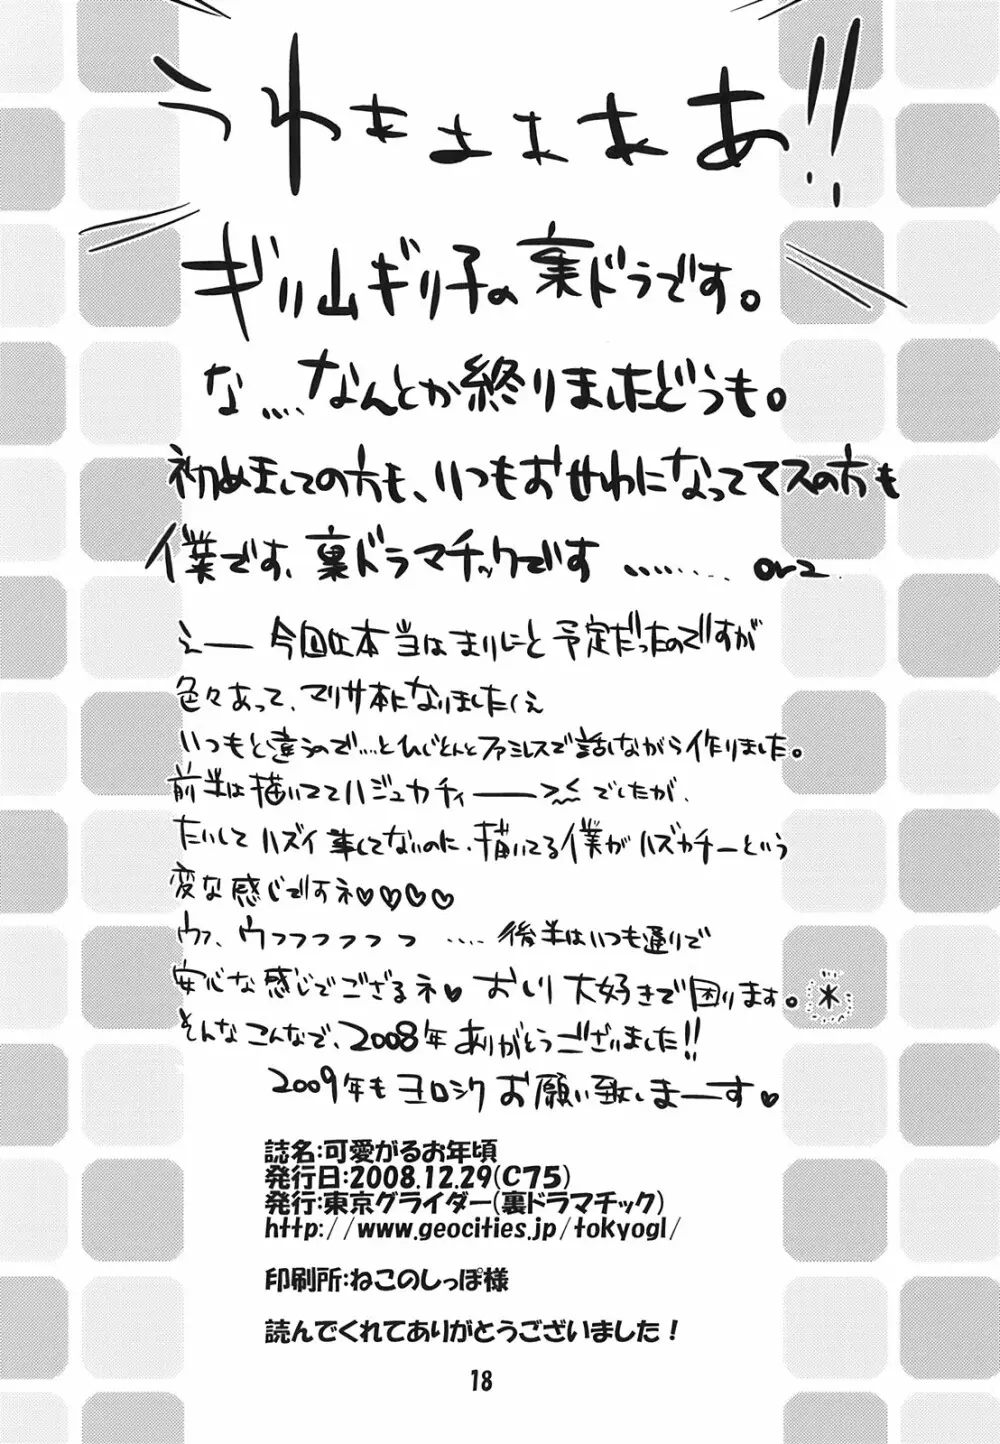 うわぁぁぁぁあ!!
ギリ山ギリ子の裏ドラです。
な…なんとか終りましたどうも。
初めましての方も、いつもおせわになってマスの方も
僕です、裏ドラマチックです ……… orz
えー 今回は本当はまりにと予定だったのですが
色々あって、マリサ本になりました(え
いつもと違うので…とひじとんとファミレスで話しながら作りました。
前半は描いててハジュカチィー でしたが、
たいしてハズイ事してないのに、描いてる僕がハズカチーという
変な感じですネ♥♥♥♥
ウァ、ウフフフフフ …. 後半はいつも通りで
安心な感じでござるネ♥ おしり大好きで困ります。*
そんなこんなで、2008年ありがとうございました!!
2009年もヨロシク お願い致しまーす♥
誌名:可愛がるお年頃
発行日:2008.12.29(C75)
発行:東京グライダー(裏ドラマチック)
http://www.geocities.jp/tokyogl/
印刷所:ねこのしっぽ様
読んでくれてありがとうございました！
18